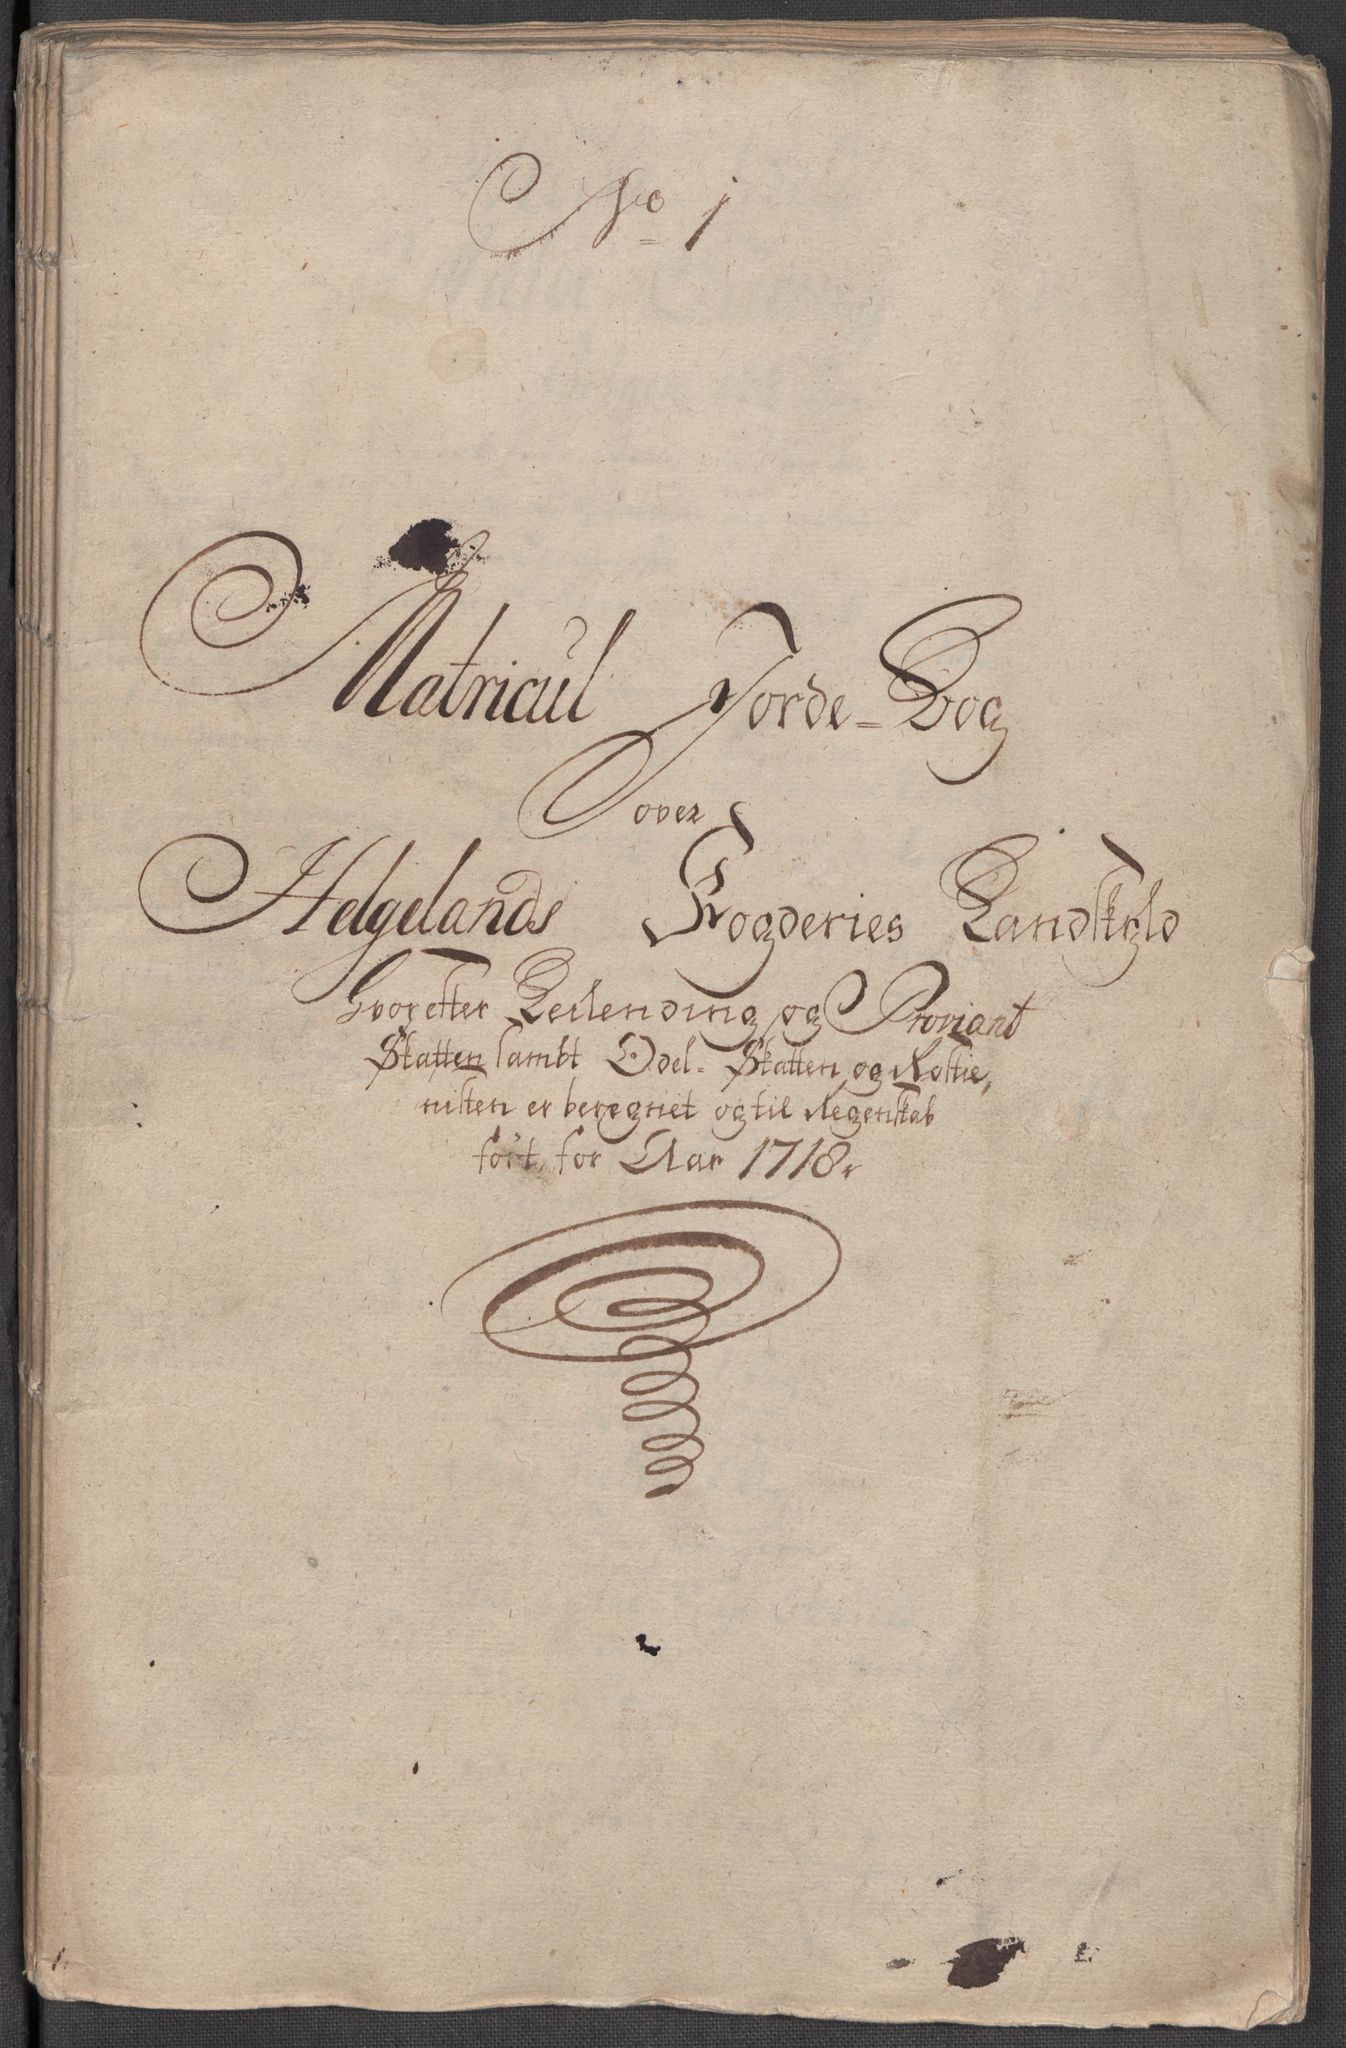 No 1
Matricul Jorde-Bog
over
Helgelands Fogderies Landskyld
Hvorefter Leilending og Proviant
Skatten sambt Odel-Skatten og Rostie,
nisten er beregnet og til Regenskab
ført for Aar 1718